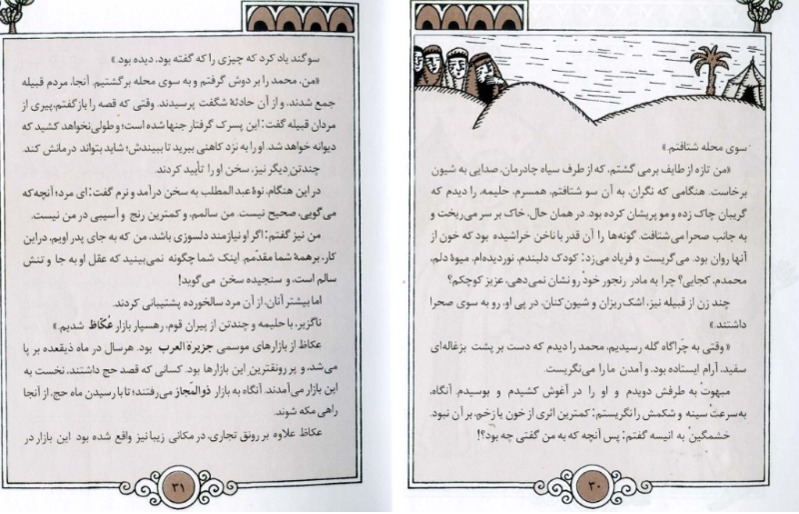 سوی محله شتافتم.»
«من تازه از طایف برمی گشتم، که از طرف سیاه چادرمان، صدایی به شیون
برخاست. هنگامی که نگران، به آن سو شتافتم، همسرم، حلیمه، را دیدم که
گریبان چاک زده و مو پریشان کرده بود. در همان حال، خاک بر سر می‌ریخت و
به جانب صحرا می‌شتافت. گونه‌ها را آن قدر با ناخن خراشیده بود که خون از
آنها روان بود. می‌گریست و فریاد می‌زد: کودک دلبندم، نوردیده‌ام، میوهٔ دلم،
محمدم، کجایی؟ چرا به مادر رنجور خود رو نشان نمی‌دهی، عزیز کوچکم؟
چند زن از قبیله نیز، اشک ریزان و شیون کنان، در پی او، رو به سوی صحرا
داشتند.»
«وقتی به چراگاه گله رسیدیم، محمد را دیدم که دست بر پشت بزغاله‌ای
سفید، آرام ایستاده بود، و آمدن ما را می‌نگریست.
مبهوت به طرفش دویدم و او را در آغوش کشیدم و بوسیدم. آنگاه،
به‌سرعت سینه و شکمش را نگریستم: کمترین اثری از خون یا زخم، بر آن نبود.
خشمگین به انیسه گفتم: پس آنچه که به من گفتی چه بود؟!
۳۰
سوگند یاد کرد که چیزی را که گفته بود، دیده بود.»
«من، محمد را بر دوش گرفتم و به سوی محله برگشتیم. آنجا، مردم قبیله
جمع شدند، و از آن حادثهٔ شگفت پرسیدند. وقتی که قصه را بازگفتم، پیری از
مردان قبیله گفت: این پسرک گرفتار جنها شده است؛ و طولی نخواهد کشید که
دیوانه خواهد شد. او را به نزد کاهنی ببرید تا ببیندش؛ شاید بتواند درمانش کند.
چندتن دیگر نیز، سخن او را تأیید کردند.
در این هنگام، نوهٔ عبدالمطلب به سخن درآمد و نرم گفت: ای مرد؛ آنچه که
می‌گویی، صحیح نیست. من سالمم، و کمترین رنج و آسیبی در من نیست.
من نیز گفتم: اگر او نیازمند دلسوزی باشد، من که به جای پدر اویم، در این
کار، بر همهٔ شما مقدّمم. اینک شما چگونه نمی‌بینید که عقل او به جا و تنش
سالم است، و سنجیده سخن می‌گوید!
اما بیشتر آنان، از آن مرد سالخورده پشتیبانی کردند.
ناگزیر، با حلیمه و چندتن از پیران قوم، رهسپار بازار عُکّاظ شدیم.»
عکاظ از بازارهای موسمی جزیرة العرب بود. هرسال در ماه ذیقعده بر پا
می‌شد، و پر رونقترین این بازارها بود. کسانی که قصد حج داشتند، نخست به
این بازار می‌آمدند. آنگاه به بازار ذوالمَجاز می‌رفتند؛ تا با رسیدن ماه حج، از آنجا
راهی مکه شوند.
عکاظ علاوه بر رونق تجاری، در مکانی زیبا نیز واقع شده بود. این بازار در
۳۱